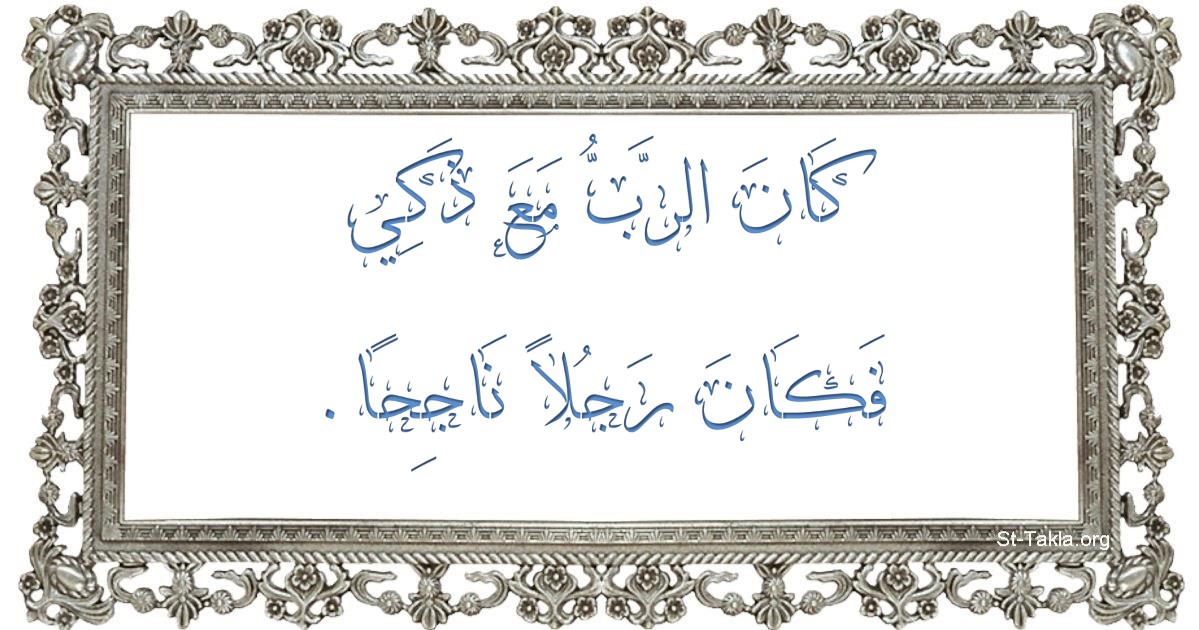 كَانَ الرَّبُّ مَعَ ذَكِي
فَكَانَ رَجُلاً نَاجِحًا .
St-Takla.org